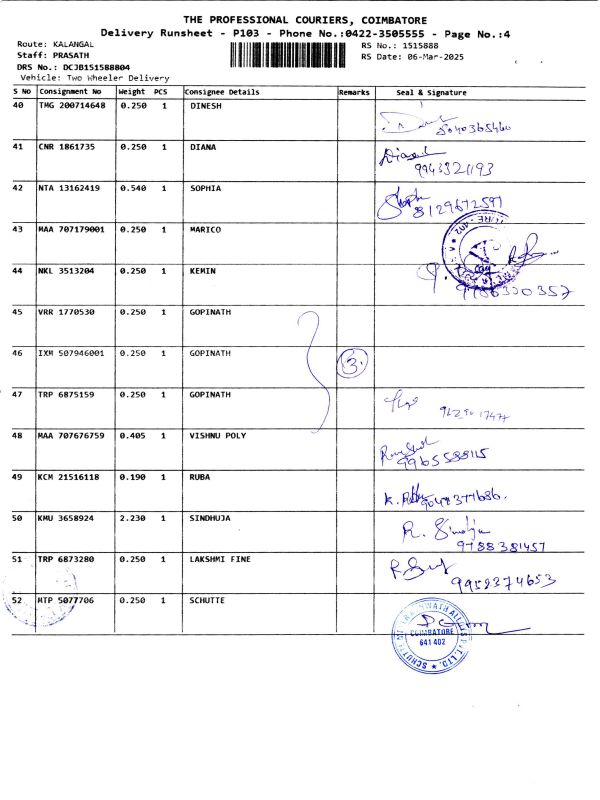 THE PROFESSIONAL COURIERS, COIMBATORE
Delivery Runsheet - P103 - Phone No.:0422-3505555 - Page No.:4
Route: KALANGAL RS No.: 1515888
Staff: PRASATH RS Date: 06-Mar-2025
DRS No.: DCJB151588804
Vehicle: Two Wheeler Delivery
S No Consignment No Weight PCS Consignee Details Remarks Seal & Signature
40 TMG 200714648 0.250 1 DINESH
41 CNR 1861735 0.250 1 DIANA
42 NTA 13162419 0.540 1 SOPHIA
8129672597
43 MAA 707179001 0.250 1 MARICO
44 NKL 3513204 0.250 1 KEMIN
45 VRR 1770530 0.250 1 GOPINATH
46 IXM 507946001 0.250 1 GOPINATH 3.
47 TRP 6875159 0.250 1 GOPINATH
48 MAA 707676759 0.405 1 VISHNU POLY
9965588115
49 KCM 21516118 0.190 1 RUBA
50 KMU 3658924 2.230 1 SINDHUJA
9788381457
51 TRP 6873280 0.250 1 LAKSHMI FINE
9952374653
52 MTP 5077706 0.250 1 SCHUTTE
COIMBATORE
641 402